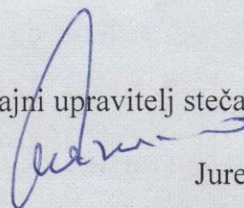 ajni upravitelj steča
Jure